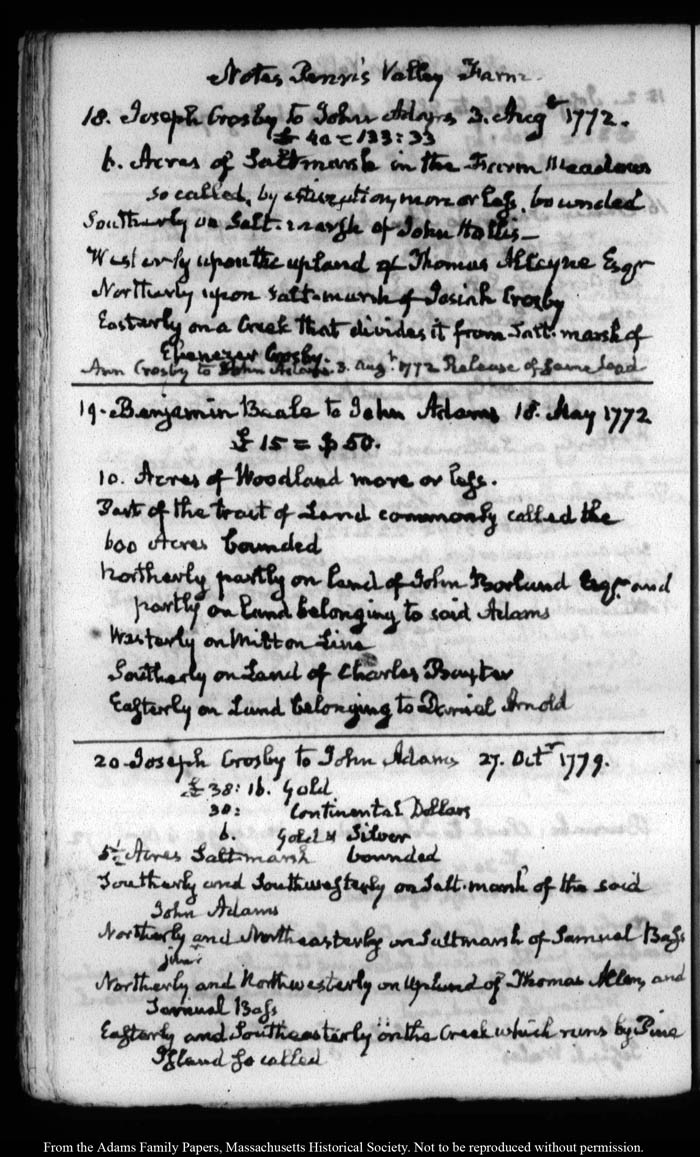 Notes Penn's Valley Farm
18. Joseph Crosby to John Adams 3. Augt 1772.
£ 40 = 133:33
6. Acres of Saltmarsh in the Farm Meadows
so called, by estimation, more or less, bounded
Southerly on Salt-marsh of John Hollis—
Westerly upon the upland of Thomas Alleyne Esqr
Northerly upon Salt-marsh of Josiah Crosby
Easterly on a Creek that divides it from Salt-marsh of
Ebenezer Crosby.
Ann Crosby to John Adams. 3. Augt. 1772 Release of same Land
19. Benjamin Beale to John Adams 18. May 1772
£ 15 = $ 50.
10. Acres of Woodland more or less.
Part of the tract of Land commonly called the
600 Acres bounded
Northerly partly on land of John Borland Esqr. and
partly on land belonging to said Adams
Westerly on Milton Line
Southerly on Land of Charles Baxter
Easterly on Land belonging to Daniel Arnold
20. Joseph Crosby to John Adams 27. Octr 1779.
£ 38: 16. Gold
30: Continental Dollars
6. Gold & Silver
5½ Acres Saltmarsh bounded
Southerly and Southwesterly on Salt-marsh of the said
John Adams
Northerly and Northeasterly on Saltmarsh of Samuel Bass
junr
Northerly and Northwesterly on Upland of Thomas Allen, and
Samuel Bass
Easterly and Southeasterly on the Creek which runs by Pine
Island so called
From the Adams Family Papers, Massachusetts Historical Society. Not to be reproduced without permission.